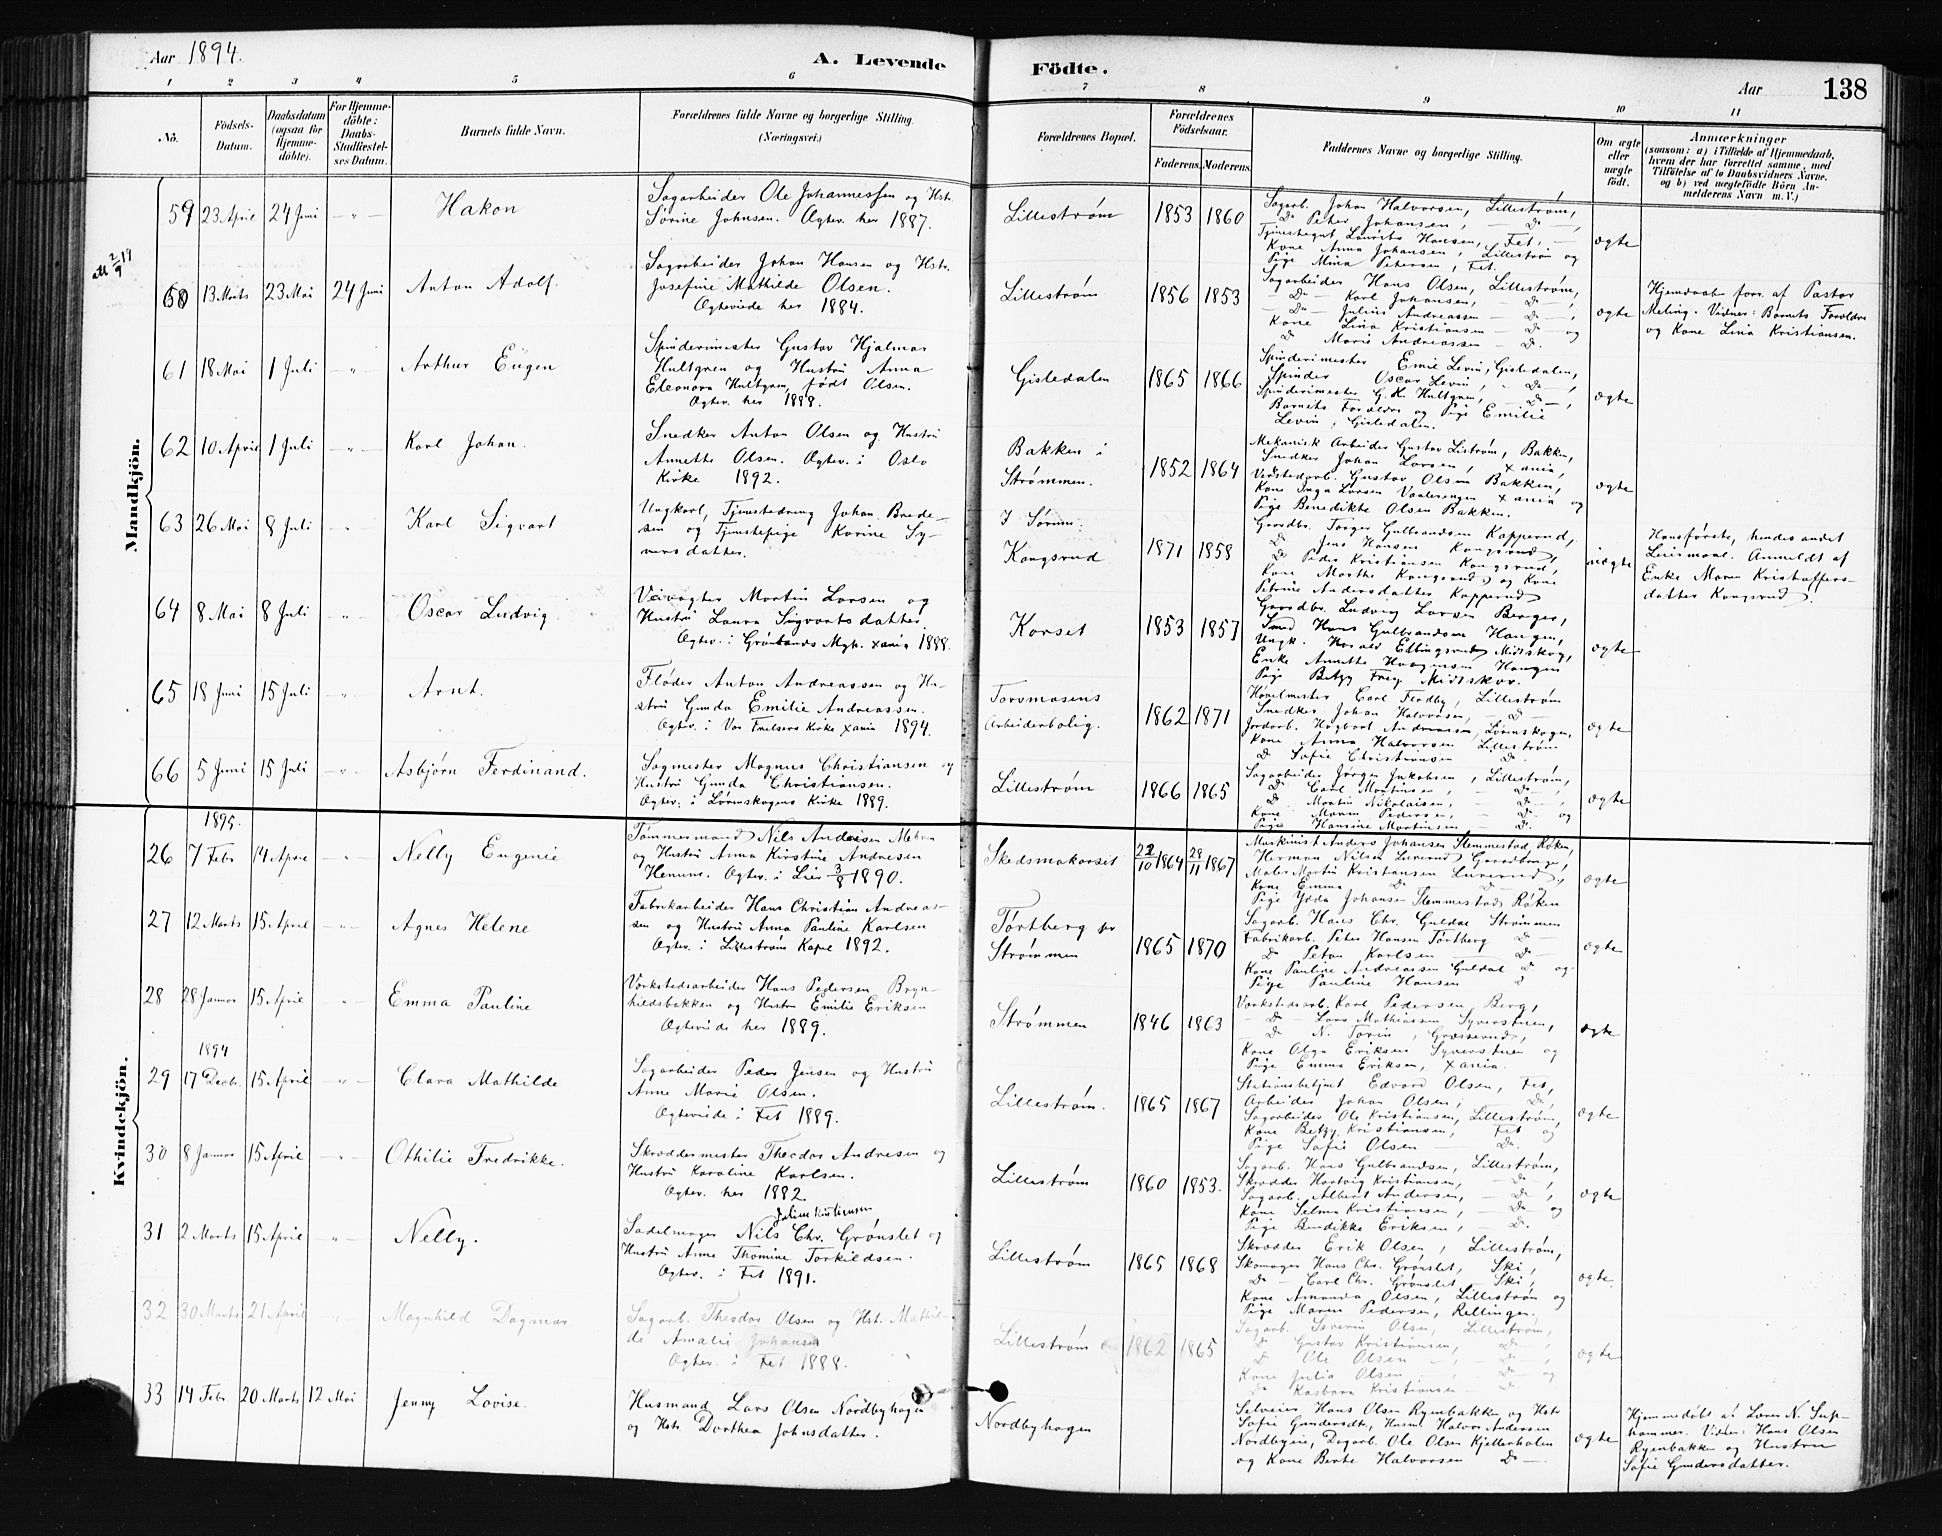 Aar 1894.
A. Levende Födte.
Aar
138
1 2 3 4 5 6 7 8 9 10 11
No.
Födsels-Datum.
Daabsdatum (ogsaa for Hjemme-döbte).
For Hjemme-döbte: Daabs-Stadfæstel-ses Datum.
Barnets fulde Navn.
Forældrenes fulde Navne og borgerlige Stilling.
(Næringsvei.)
Forældrenes Bopæl.
Forældrenes Födselsaar.
Faderens. Moderens.
Faddernes Navne og borgerlige Stilling.
Om ægte eller uægte födt.
Anmærkninger
(saasom: a) i Tilfælde af Hjemmedaab,
hvem der har forrettet samme, med
Tilföielse af to Daabsvidners Navne,
og b) ved uægtefödte Börn An-
melderens Navn m. V.)
Mandkjön.
59 23 April 24 Juni Hakon
Sagarbeider Ole Johannessen og Hst.
Sørine Johnsen. Ægtev. her 1887.
Lillestrøm 1853 1860
Sagarb. Johan Halvorsen, Lillestrøm,
Do Peter Johansen, Do,
Tjenestegut Laurits Hansen, Fet,
Kone Anna Johansen, Lillestrøm og
Pige Mina Petersen, Fet.
ægte
60 13 Marts 23 Mai 24 Juni Anton Adolf.
Sagarbeider Johan Hansen og Hstr.
Josefine Mathilde Olsen.
Ægteviede her 1884.
Lillestrøm 1856 1853
Sagarbeider Hans Olsen, Lillestrøm,
Do Karl Johansen, Do,
Do Julius Andreassen Do,
Kone Lina Kristiansen Do og
Do Marie Andreassen Do.
ægte
Hjemdaab forr. af Pastor
Meling. Vidner: Barnets Forældre
og Kone Lina Kristiansen.
61 18 Mai 1 Juli Arthur Eugen
Spinderimester Gustav Hjalmar
Hultgren og Hustru Anna
Eleonora Hultgren, født Olsen.
Ægtev. her 1888.
Gisledalen 1865 1866
Spinderimester Emil Levin, Gisledalen,
Spinder Oscar Levin, Do,
Spinderimester G. H. Hultgren, Do,
Barnets Forældre og Pige Emilie
Levin, Gisledalen.
ægte
62 10 April 1 Juli Karl Johan.
Snedker Anton Olsen og Hustru
Annette Olsen. Ægtev. i Oslo
Kirke 1892.
Bakken i
Strømmen. 1852 1864
Mekanisk Arbeider Gustav Listrøm, Bakken,
Snedker Johan Larsen, Xania,
Verkstedarb. Gustav Olsen Bakken,
Kone Inga Larsen Vaalerengen Xania og
Pige Benedikte Olsen Bakken.
ægte
63 26 Mai 8 Juli Karl Sigvart
Ungkarl, Tjenestedreng Johan Brede-
sen og Tjenestepige Karine Sy-
versdatter.
I Sørum:
Kongsrud 1871 1858
Gaardbr. Torger Gulbrandsen Kapperud,
Do Jens Hansen Kongsrud,
Do Peder Kristiansen Kongsrud,
Kone Marthe Kongsrud og Kone
Petrine Andersdatter Kapperud
uægte
Hansførste, hendes andet
Leiermaal. Anmeldt af
Enke Maren Kristoffers-
datter Kongsrud.
64 8 Mai 8 Juli Oscar Ludvig
Veivogter Martin Larsen og
Hustru Laura Sigvartsdatter
Ægtev. i Grønlands Mgh. Xania 1888.
Korset 1853 1857
Gaardbr. Ludvig Larsen Berger,
Smed Hans Gulbrandsen Haugen,
Ungk. Harald Ellingsrud Midtskog,
Enke Annette Haagensen Haugen
Pige Betzy Frey Midtskov.
ægte
65 18 Juni 15 Juli Arnt.
Fløder Anton Andreassen og Hu-
stru Gunda Emilie Andreassen.
Ægtev. i Vor Frelsers Kirke Xania 1894.
Torvmosens
Arbeiderbolig. 1862 1871
Høvelmester Carl Flodby, Lillestrøm
Snedker Johan Halvorsen, Do
Jordarb. Hagbart Andreassen, Lørenskogen,
Kone Anna Halvorsen Lillestrøm
Do Sofie Christiansen Do.
ægte
66 5 Juni 15 Juli Asbjørn Ferdinand.
Sagmester Magnus Christiansen og
Hustru Gunda Christiansen.
Ægtev. i Lørenskogens Kirke 1889.
Lillestrøm 1866 1865
Sagarbeider Jørgen Jakobsen, Lillestrøm,
Do Carl Martinsen, Do
Do Martin Nikolaisen, Do,
Kone Maren Pedersen, Do og
Pige Hansine Martinsen Do.
ægte
Kvindekjön.
1895.
26 7 Febr. 14 April Nelly Eugenie
Tømmermand Nils Andresen Mebon
og Hustru Anna Kirstine Andresen
Henum. Ægtev. i Lier 3/8 1890.
Skedsmokorset 1864 29/11 1867
Maskinist Anders Johansen Slemmestad, Røken,
Herman Nilsen Gaardbruger,
Maler Martin Kristiansen
Kone Emma Do
Pige Johansen Slemmestad Røken
ægte
27 12 Marts 15 April Agnes Helene
Fabrikarbeider Hans Christian Andreas-
sen og Hustru Anna Pauline Karlsen
Ægtev. i Lillestrøms Kapel 1892.
Tørtberg pr
Strømmen 1865 1870
Sagarb. Hans Chr. Guldal Strømmen
Fabrikarb. Peter Hansen Tørtberg Do
Do Peton Karlsen Do
Kone Pauline Andreassen Guldal Do og
Pige Pauline Hansen Do
ægte
28 28 Januar 15 April Emma Pauline
Værkstedsarbeider Hans Pedersen Bryn-
hildsbakken og Hustru Emilie Eriksen
Ægteviede her 1889.
Strømmen 1846 1863
Værkstedsarb. Karl Pedersen Berg,
Do Lars Mathiassen Syverstuen,
Do N. Torin,
Kone Olga Eriksen Syverstuen og
Pige Emma Eriksen, Xania.
ægte
1894
29 17 Decbr. 15 April Clara Mathilde
Sagarbeider Peder Jensen og Hustru
Anne Marie Olsen.
Ægteviede i Fet 1889.
Lillestrøm. 1865 1867
Stationsbetjent Edvard Olsen, Fet,
Arbeider Johan Olsen, Do,
Sagarbeider Ole Kristiansen, Lillestrøm,
Kone Betzy Kristiansen, Fet og
Pige Sofie Olsen Do.
ægte
30 8 Januar 15 April Othilie Fredrikke.
Skræddermester Theodor Andresen og
Hustru Karoline Karlsen.
Ægtev. her 1882.
Lillestrøm 1860 1853.
Sagarb. Hans Gulbrandsen, Lillestrøm,
Skrædder Hartvig Kristiansen, Do,
Sagarb. Albert Andersen, Do,
Kone Selma Kristiansen, Do og
Pige Bendikke Eriksen, Do.
ægte
31 2 Marts 15 April Nelly.
Sadelmager Nils Chr. Grønslet og
Hustru Anne Thomine Torkildsen.
Ægtev. i Fet 1891.
Lillestrøm 1865 1868
Skrædder Erik Olsen, Lillestrøm,
Skomager Hans Chr. Grønslet, Ski,
Do Carl Chr. Grønslet Ski,
Kone Amanda Olsen, Lillestrøm og
Pige Maren Pedersen, Rellingen.
ægte
32 30 Marts 21 April Magnhild Dagmar
Sagarb. Theodor Olsen og Hst. Mathil-
de Amalie Johansen
Ægtev. i Fet 1888.
Lillestrøm 1862 1865
Sagarb. Severin Olsen, Lillestrøm,
Do Gustav Kristiansen, Do,
Do Ole Olsen, Do,
Kone Julia Olsen Do og
Do Kasbara Kristiansen Do
ægte
33 14 Febr 20 Marts 12 Mai Jenny Lovise.
Husmand Lars Olsen Nordbyhagen
og Hstr. Dorthea Johnsdatter.
Nordbyhagen
Selveier Hans Olsen Rynbakken og Hstr
Sofie Gundersdt., Husm. Halvor Andersen
Nordbyeie, Dagarb. Ole Olsen Kjellerholen
og Kone Berte Halvorsen Do.
ægte
Hjemmedøbt af Lærer N. Sup-
hammer. Vidner: Hans Olsen
Rynbakken og Hustru
Sofie Gundersdatter.